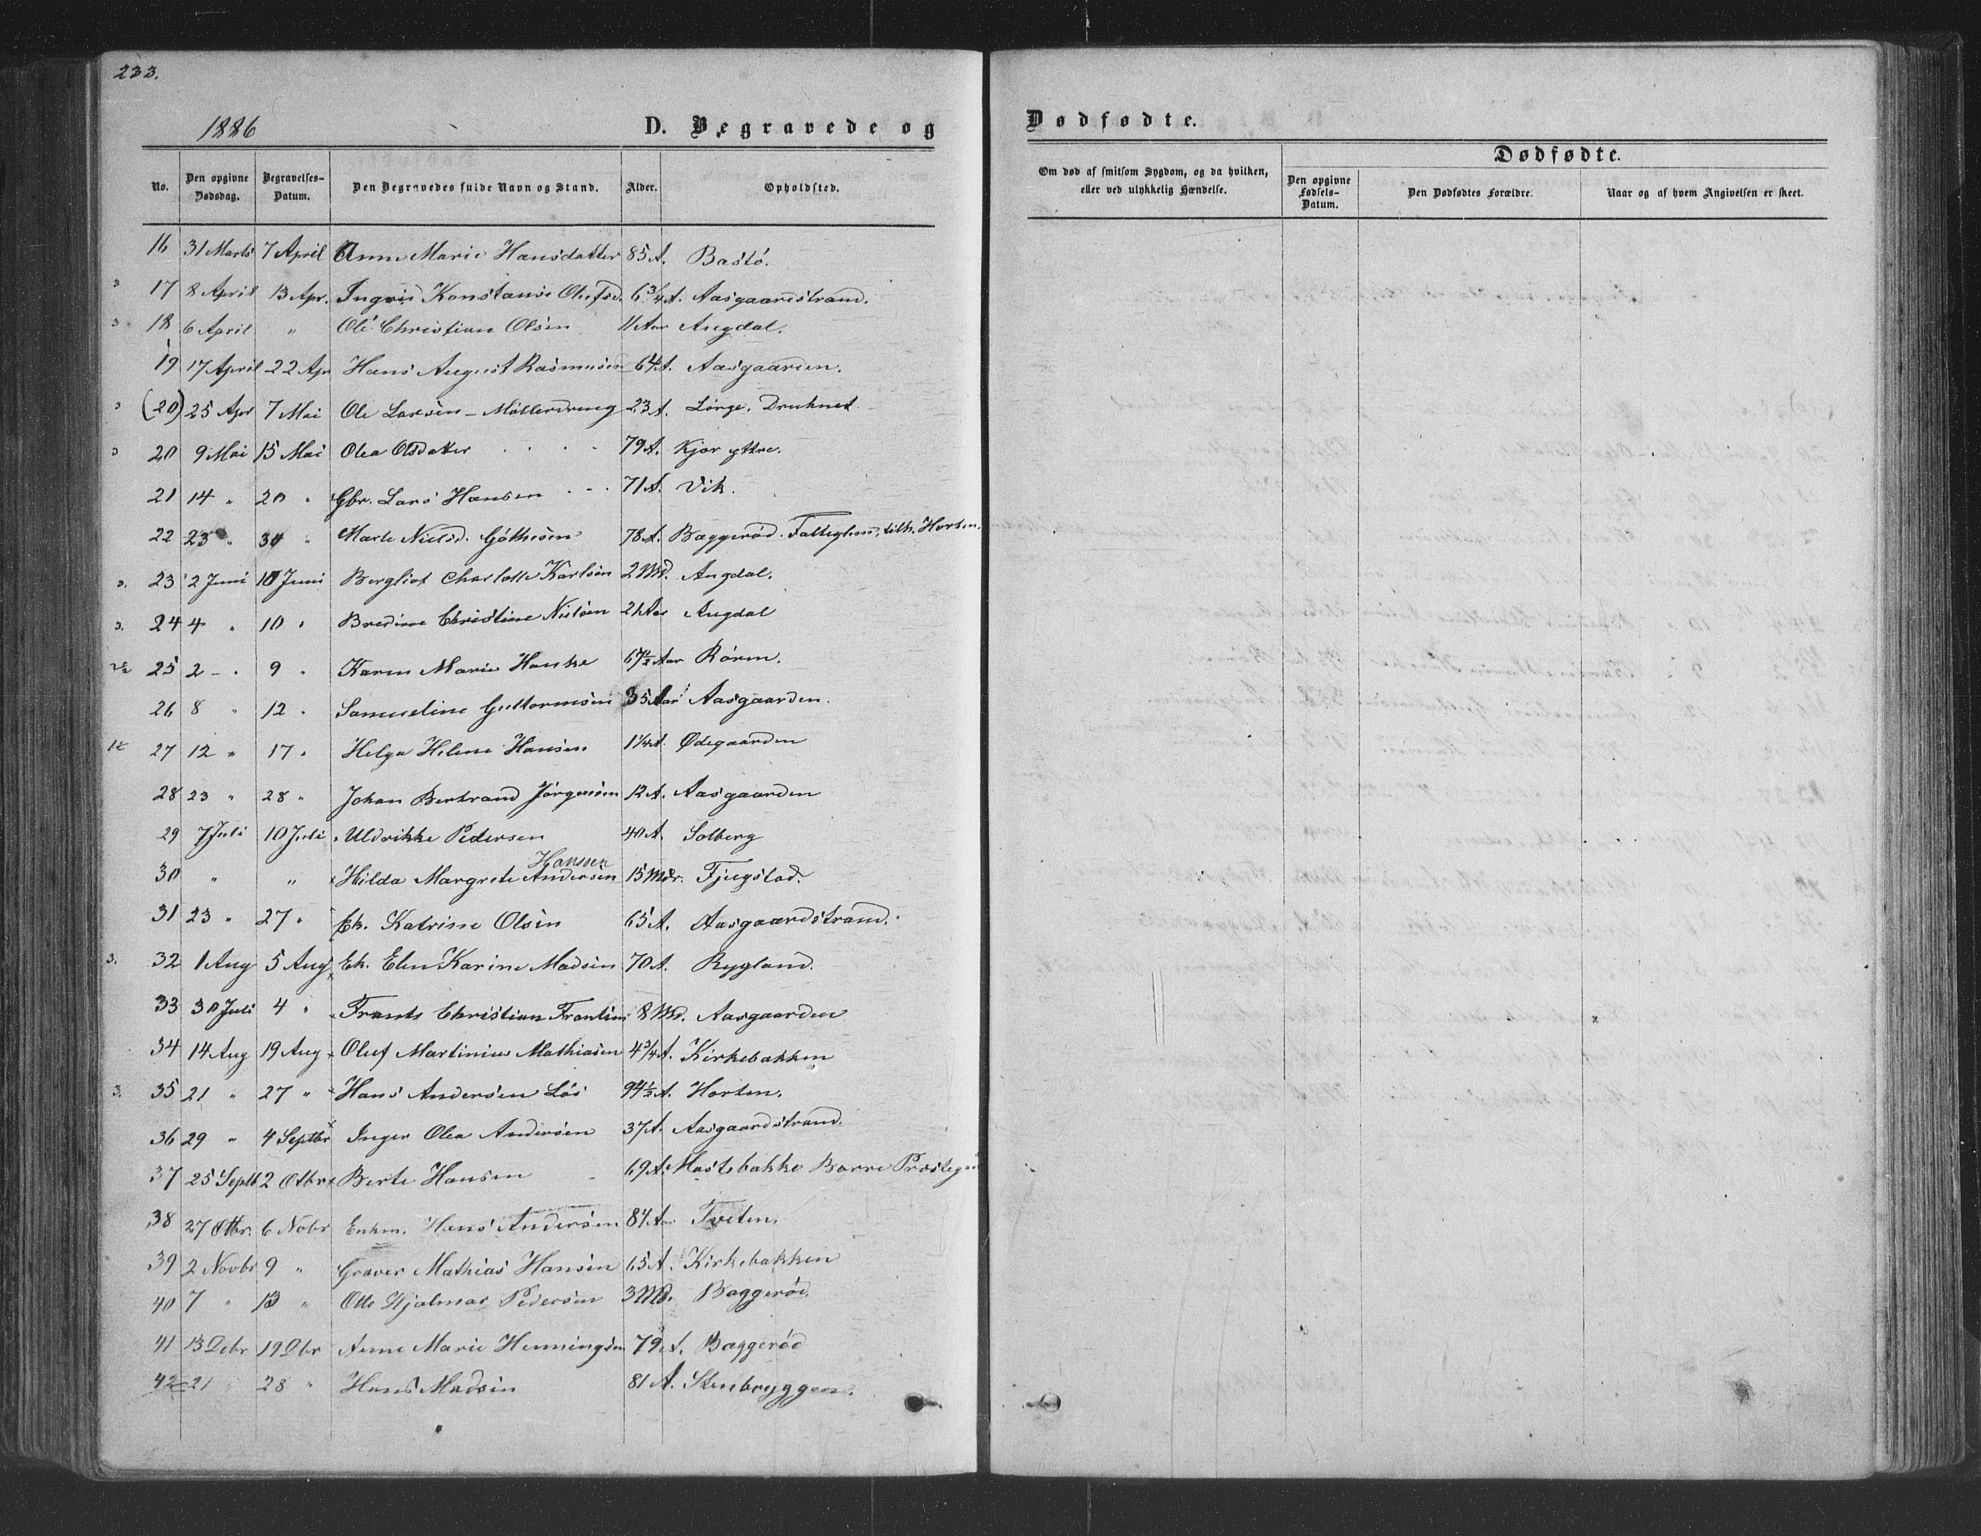 233.
1886
D. Begravede og
Dødfødte.
No. Den opgivne Dødsdag. Begravelses-Datum. Den Begravedes fulde Navn og Stand. Alder. Opholdsted.
Om død af smitsom Sygdom, og da hvilken, eller ved ulykkelig Hændelse.
Dødfødte.
Den opgivne Fødsels-Datum. Den Dødfødtes Forældre. Naar og af hvem Angivelsen er skeet.
16 31 Marts 7 April Anne Marie Hansdatter 85 A. Bastö.
17 8 April 13 Apr. Ingvis Konstanse Olefsd. 6 3/4 A. Aasgaardstrand.
18 6 April " Ole Christian Olsen 11 Aar Augdal.
19 17 April 22 Apr Hans August Rasmusen 64 A. Aasgaarden.
(20) 25 Apr 7 Mai Ole Larsen - Möllerdreng 23 A. Druknet.
20 9 Mai 15 Mai Olea Olsdatter 79 A. Kjær yttre.
21 14 " 20 " Gbr. Lars Hansen 71 A. Vik.
22 23 " 30 " Marte Nielsd. Göthesen 78 A. Baggeröd. Horten.
23 2 Juni 10 Juni Bergliot Charlotte Karlsen 2 Md. Augdal.
24 4 " 10 " Bredine Christine Nielsen 21 Aar Augdal
25 2 " 9 " Karen Marie Hanke 67 1/2 Aar Rören.
26 8 " 12 " Samueline Guttormsen 35 Aar Aasgaarden.
27 12 " 17 " Helga Helene Hansen 1 1/4 A. Ødegaarden
28 23 " 28 " Johan Bertrand Jörgensen 12 A. Aasgaarden
29 7 Juli 10 Juli Uldrikke Pedersen 40 A. Solberg
Hansen
30 " " Hilda Margrete Andersen 15 Mdr. Fjugstad.
31 23 " 27 " Ek. Katrine Olsen 65 A. Aasgaardstrand.
32 1 Aug 5 Aug Ek. Elen Karine Madsen 70 A. Rygland.
33 30 Juli 4 " Frants Christian Frantsen 8 Md. Aasgaarden
34 14 Aug 19 Aug Oluf Martinius Mathiasen 4 3/4 A. Kirkebakken
35 21 " 27 " Hans Andersen Lös 94 1/2 A. Horten.
36 29 " 4 Septbr Inger Olea Andersen 37 A. Aasgaardstrand.
37 25 Septb 2 Otbr Berte Hansen 69 A. Mastebakke Borre Præstegj
38 27 Otbr. 6 Nobr Enkm. Hans Andersen 84 Aar Tveten.
39 2 Novbr 9 " Graver Mathias Hansen 65 A. Kirkebakken
40 7 " 13 " Otto Hjalmar Pedersen 3 Md. Baggeröd.
41 13 Debr 19 Dbr Anne Marie Henningsen 79 A. Baggeröd
42 21 " 28 " Hans Madsen 81 A. Stenbryggen.